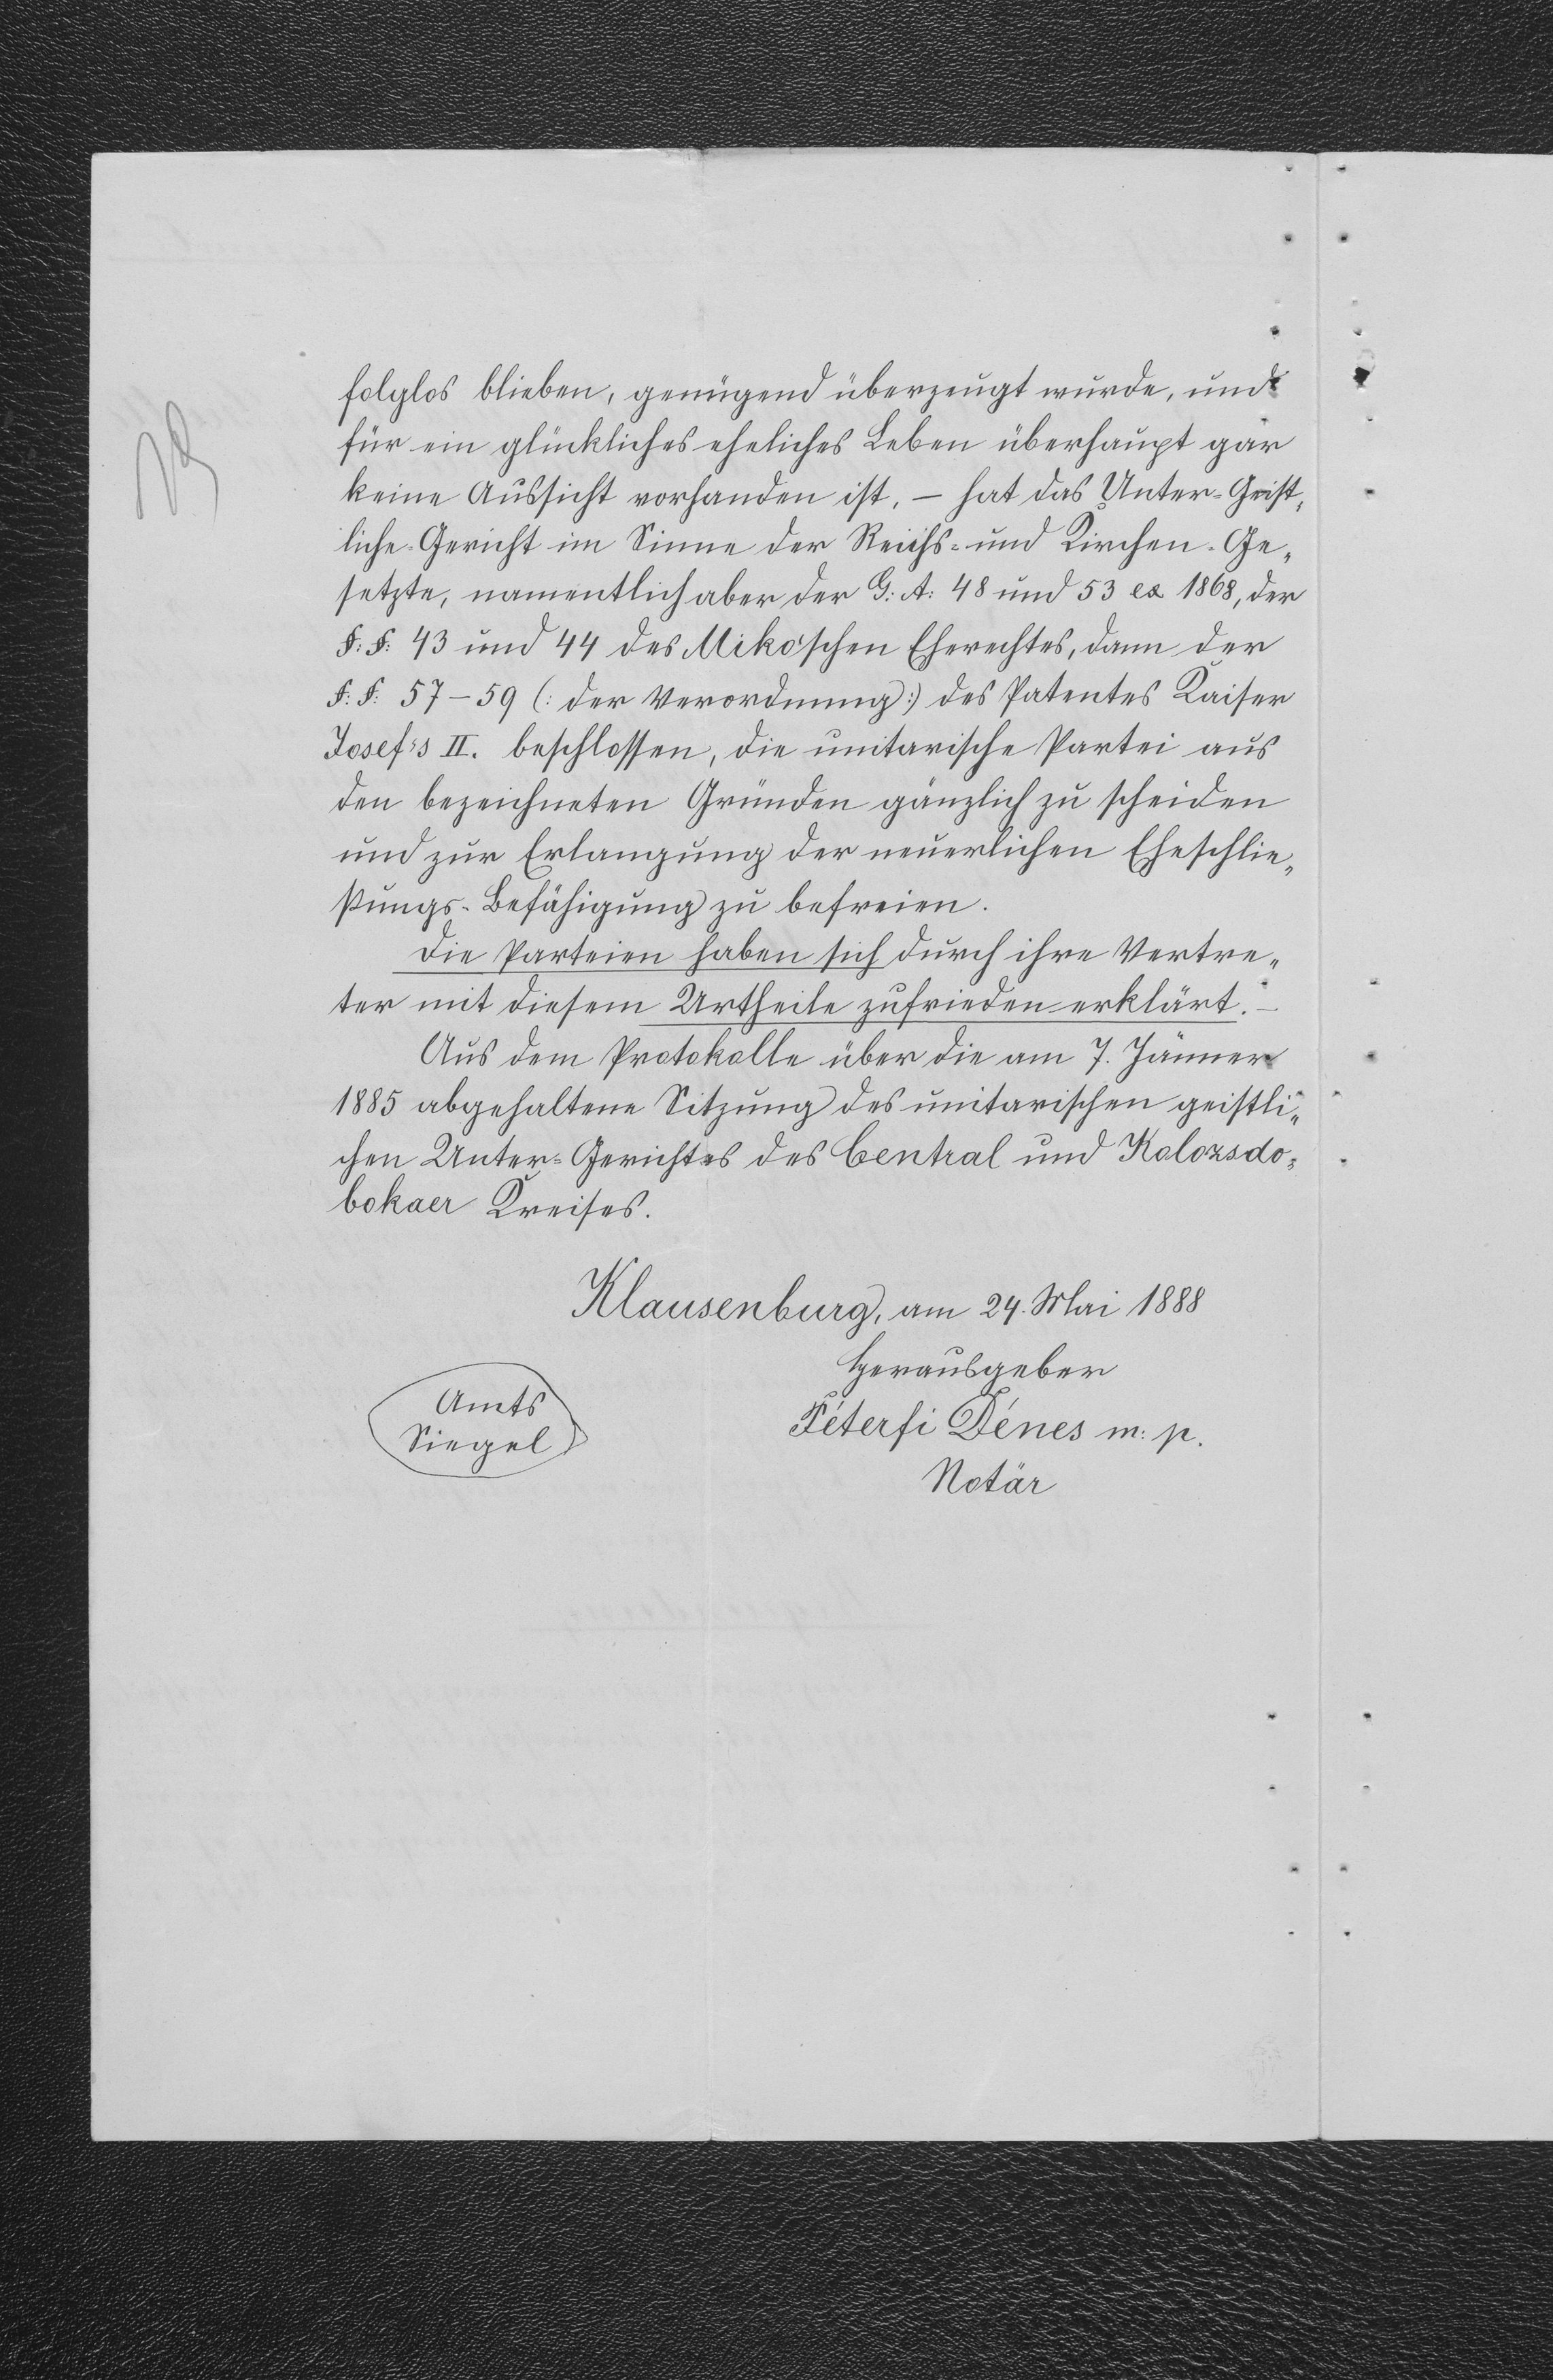 folglos blieben, genügend überzeugt wurde, und
für ein glückliches eheliches Leben überhaupt gar
keine Aussicht vorhanden ist, – hat das Unter-Geist„
liche-Gericht im Sinne der Reichs- und Kirchen-Ge„
setzte, namentlich aber der G: A: 48 und 53 ex 1868, der
§: §: 43 und 44 des Miko'schen Eherechtes, dann der
§: §: 57–59 (: der Verordnung :) des Patentes Kaiser
Josef's II. beschlossen, die unitarische Partei aus
den bezeichneten Gründen gänzlich zu scheiden
und zur Erlangung der neuerlichen Eheschlie„
ßungs-Befähigung zu befreien.
Die Parteien haben sich durch ihre Vertre„
ter mit diesem Urtheile zufrieden erklärt. –
Aus dem Protokolle über die am 7. Jänner
1885 abgehaltene Sitzung des unitarischen geistli„
chen Unter-Gerichtes des Central und Kolozsdo„
bokaer Kreises.
Klausenburg, am 24. Mai 1888
Herausgeber
Amts
Siegel
Péterfi Dénes m: p.
Notär